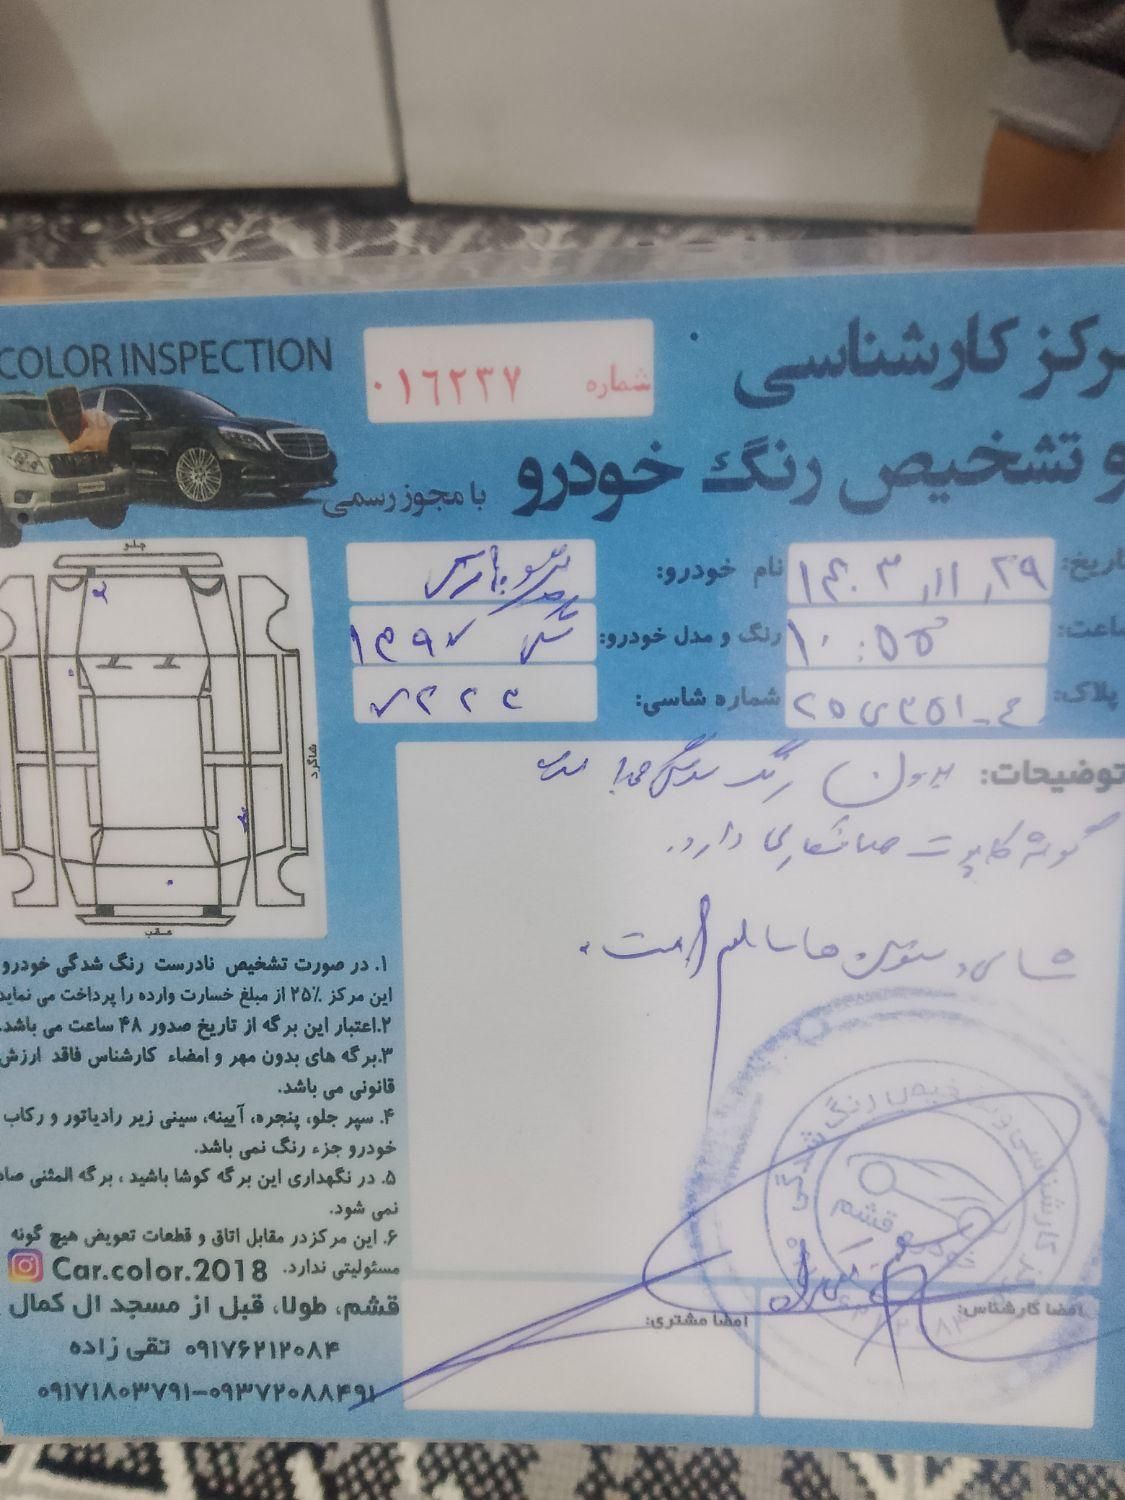 COLOR INSPECTION
شماره ۰۱۶۲۳۷
مرکز کارشناسی
و تشخیص رنگ خودرو
با مجوز رسمی
تاریخ: ۱۴۰۳,۱۱,۲۹
نام خودرو: پژو پارس
ساعت: ۱۰:۵۵
رنگ و مدل خودرو: ۱۳۹۷
پلاک:
شماره شاسی:
توضیحات: بدون رنگ شدگی
گوشه کاپوت صافکاری دارد.
شاسی و ستون ها سالم است.
جلو
شاگرد
عقب
۱. در صورت تشخیص نادرست رنگ شدگی خودرو
این مرکز ۲۵٪ از مبلغ خسارت وارده را پرداخت می نماید
۲.اعتبار این برگه از تاریخ صدور ۴۸ ساعت می باشد.
۳.برگه های بدون مهر و امضاء کارشناس فاقد ارزش
قانونی می باشد.
۴. سپر جلو، پنجره، آیینه، سینی زیر رادیاتور و رکاب
خودرو جزء رنگ نمی باشد.
۵. در نگهداری این برگه کوشا باشید ، برگه المثنی صاد
نمی شود.
۶. این مرکز در مقابل اتاق و قطعات تعویض هیچ گونه
مسئولیتی ندارد.
Car.color.2018
قشم، طولا، قبل از مسجد ال کمال
۰۹۱۷۶۲۱۲۰۸۴ تقی زاده
۰۹۱۷۱۸۰۳۷۹۱-۰۹۳۷۲۰۸۸۴۹۱
امضا مشتری:
امضا کارشناس: